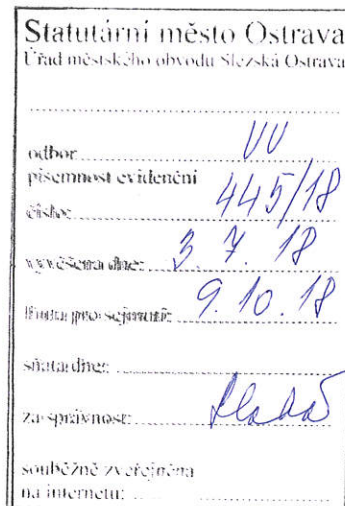 Statutární město Ostrava
Úřad městského obvodu Slezská Ostrava
odbor VV
písemnost evidenční
číslo: 445/18
vyvěšena dne: 3. 7. 18
lhůta pro sejmutí: 9. 10. 18
sňata dne:
za správnost:
souběžně zveřejněna
na internetu: